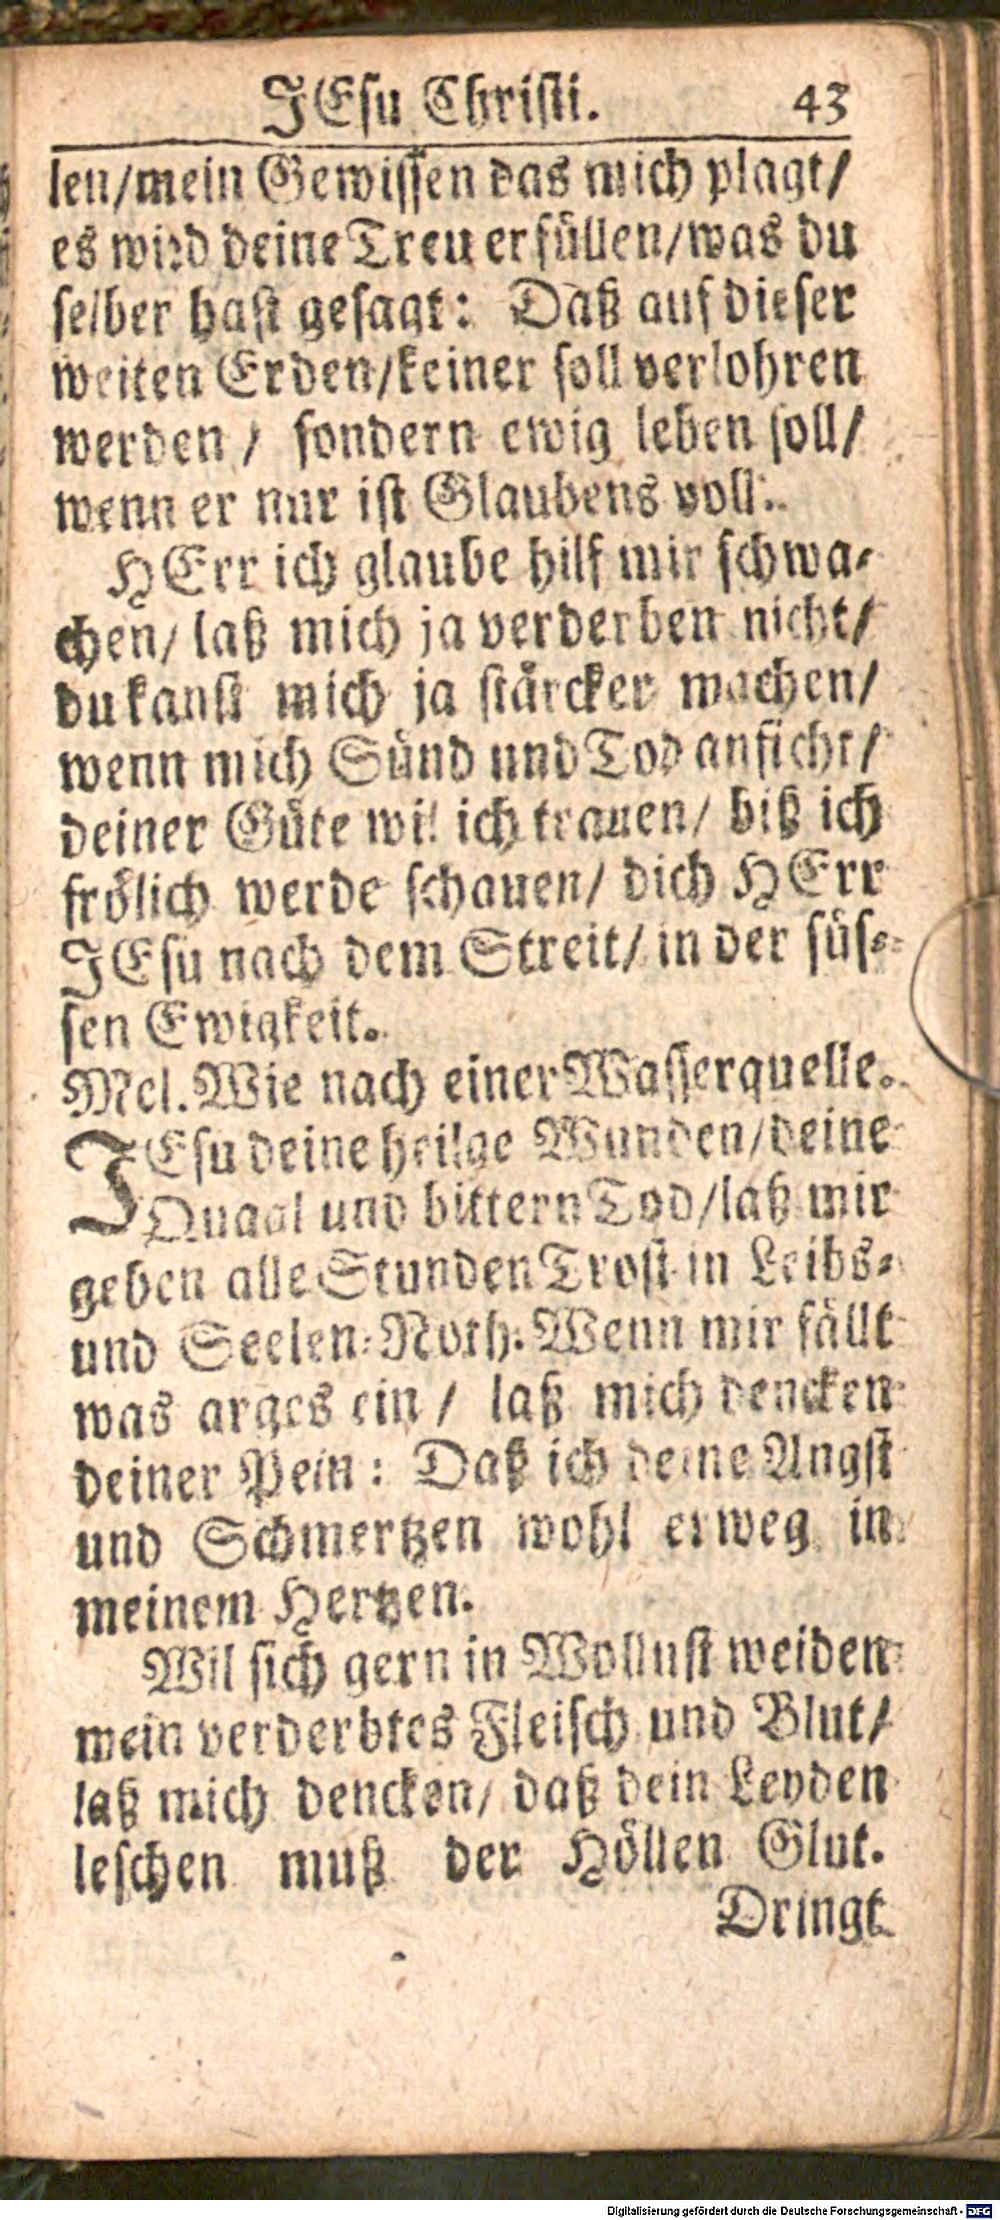 JEsu Christi. 43
len/mein Gewissen das mich plagt/
es wird deine Treu erfüllen/was du
selber hast gesagt: Daß auf dieser
weiten Erden/keiner soll verlohren
werden / sondern ewig leben soll/
wenn er nur ist Glaubens voll.
HErr ich glaube hilf mir schwa-
chen/ laß mich ja verderben nicht/
du kanst mich ja stärcker machen/
wenn mich Sünd und Tod anficht/
deiner Güte wil ich trauen/ biß ich
frölich werde schauen/ dich HErr
JEsu nach dem Streit/ in der süs-
sen Ewigkeit.
Mel. Wie nach einer Wasserquelle.
JEsu deine heilge Wunden/deine
Quaal und bittern Tod/laß mir
geben alle Stunden Trost in Leibs-
und Seelen-Noth. Wenn mir fällt
was arges ein / laß mich dencken
deiner Pein: Daß ich deine Angst
und Schmertzen wohl erweg in
meinem Hertzen.
Wil sich gern in Wollust weiden
mein verderbtes Fleisch und Blut/
laß mich dencken/ daß dein Leyden
leschen muß der Höllen Glut.
Dringt
Digitalisierung gefördert durch die Deutsche Forschungsgemeinschaft - DFG